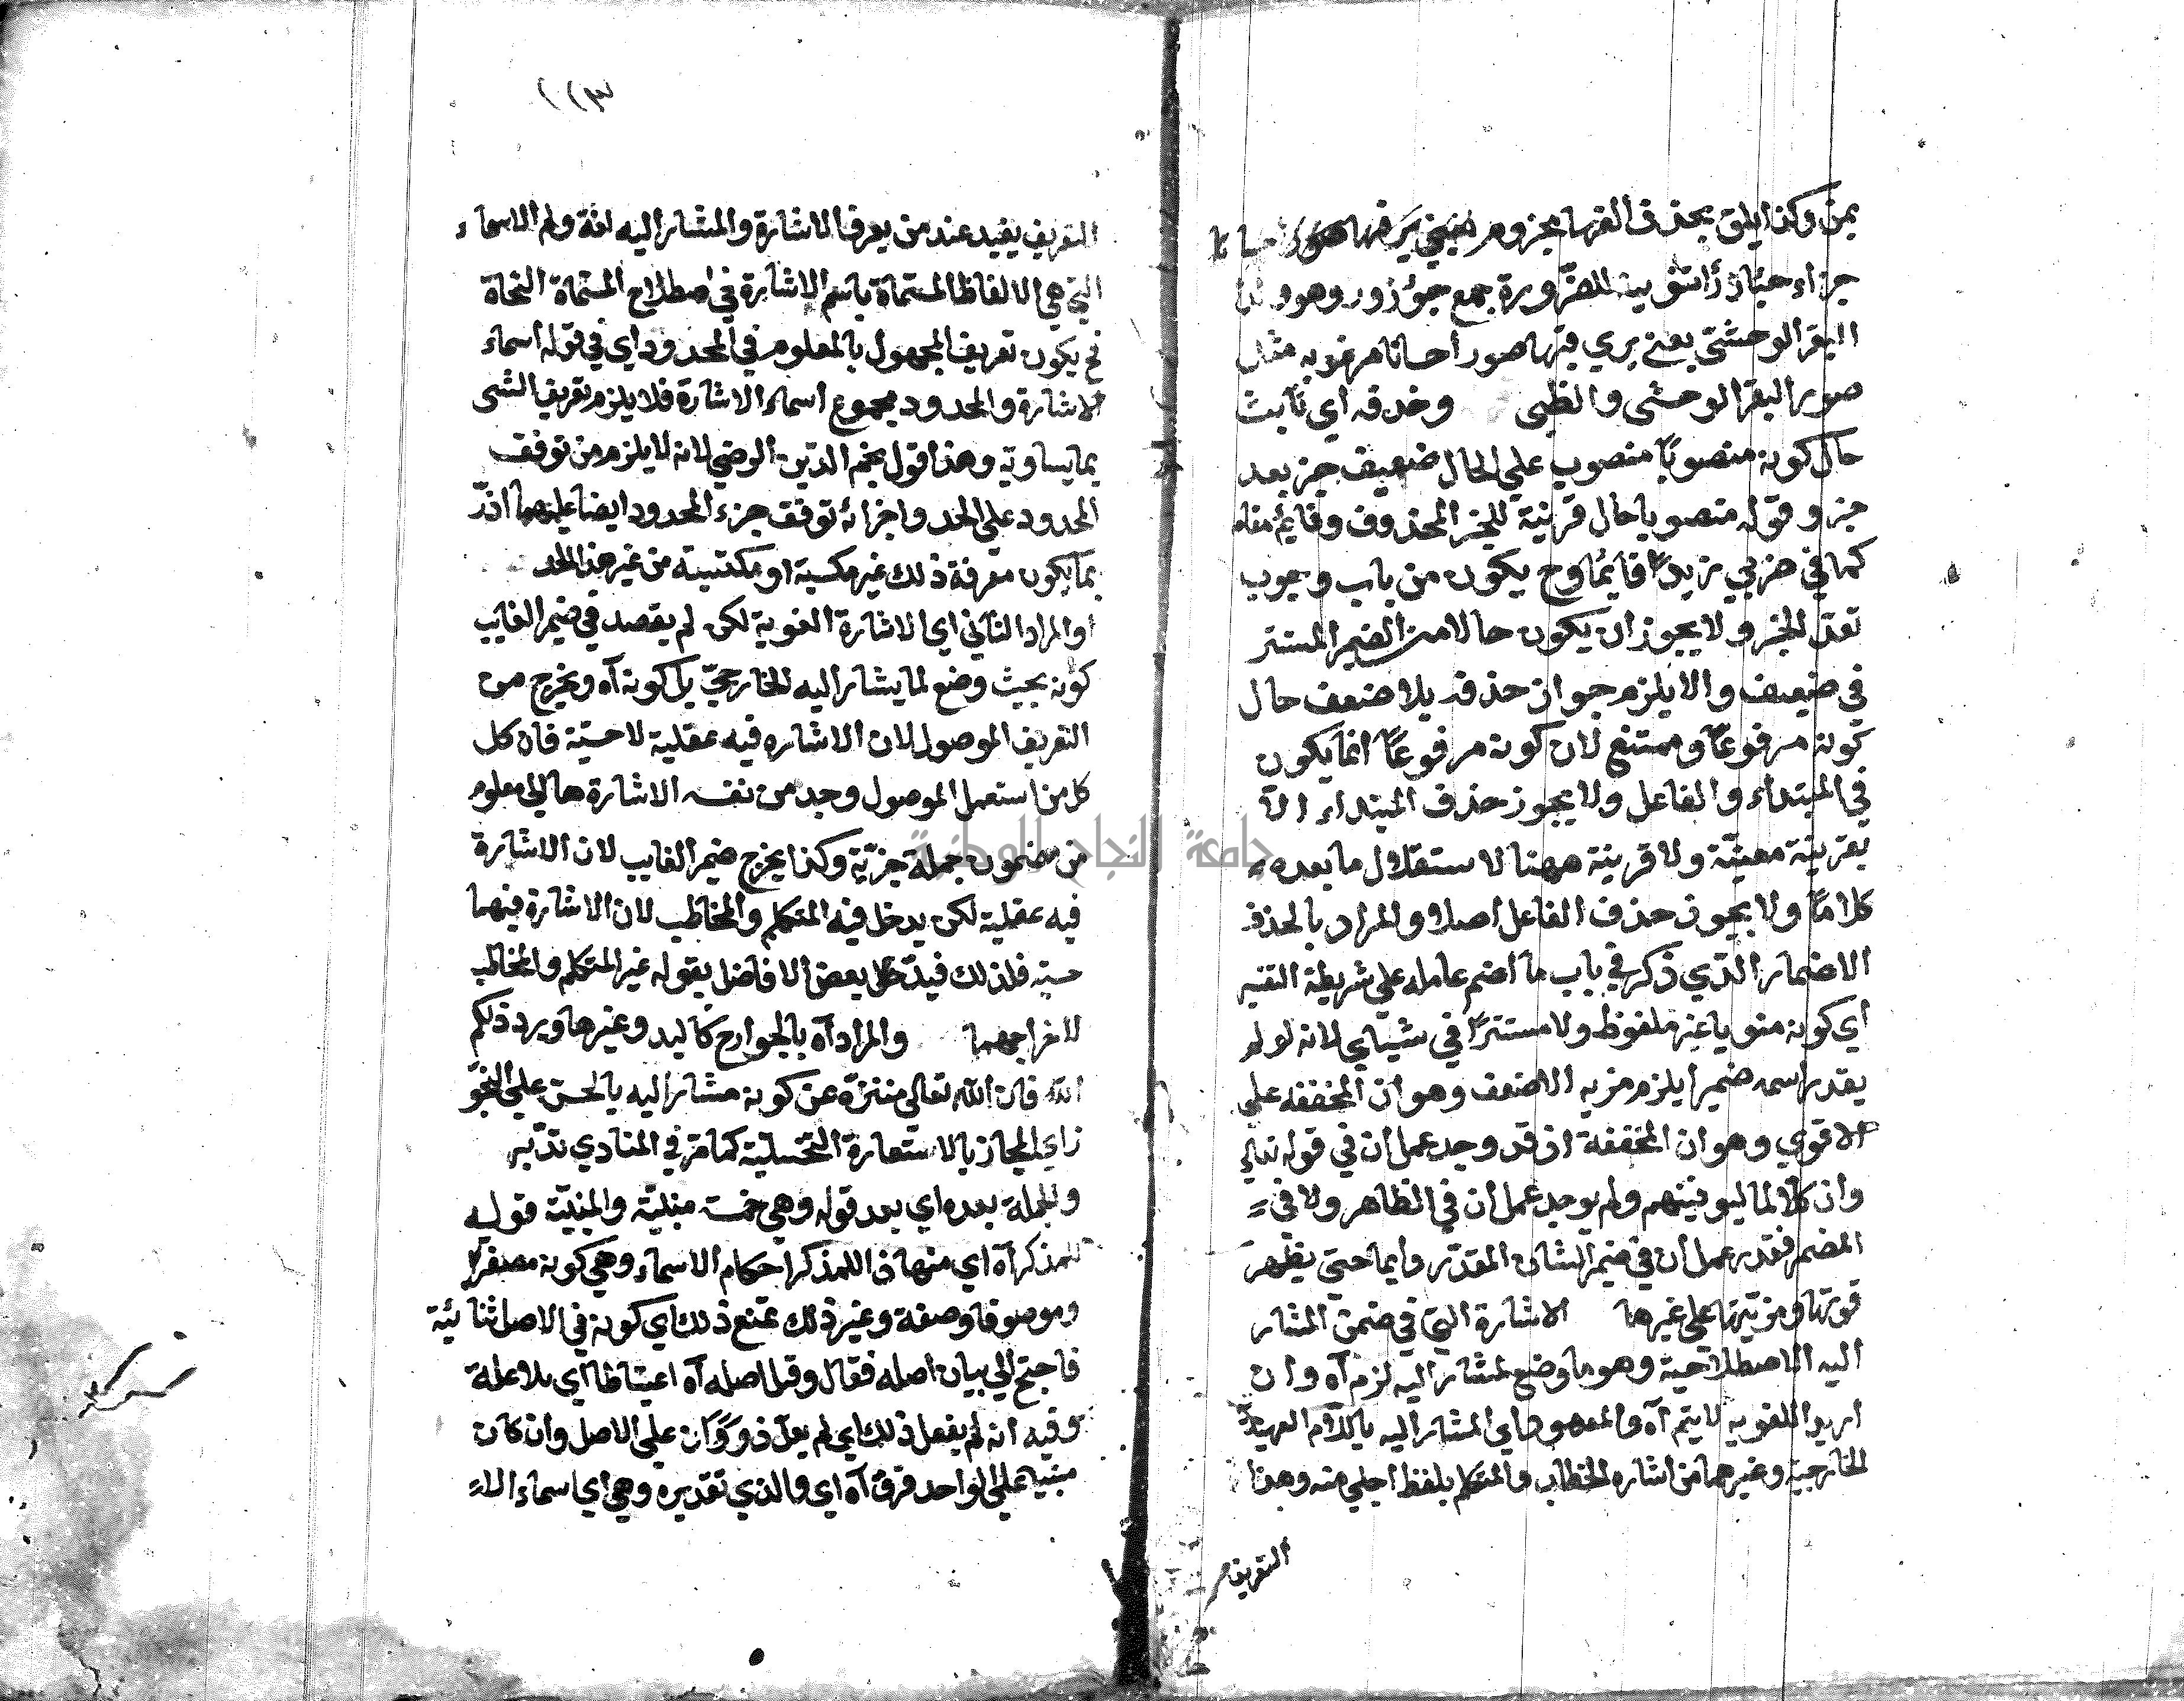 يمن وكذا يلق بحذف الفها مجزوم فيها صور احسانا
جزاء للضرورة جمع جؤزور وهو ولد
البقر الوحشي يعني يري فيها صور احسانا مرغوبه مثل
صور البقر الوحشي والظبي وخدفه اي ثابت
حال كونه منصوبا منصوب علي الحال ضعيف خبر بعد
خبر وقوله منصوبا حال قرينة للخبر المحذوف وقايم مقام
كما في ضربي زيدا قايما وح يكون من باب وجوب
الخبر ولا يجوز ان يكون حالا من الضمير المستتر
في ضعيف والا يلزم جواز حذفه بلا ضعف حال
كونه مرفوعا وممتنع لان كونه مرفوعا انما يكون
في المبتداء والفاعل ولا يجوز حذف المبتداء الا
بقرينة معينة ولا قرينة ههنا لاستقلال ما بعده
كلاما ولا يجوز حذف الفاعل اصلا والمراد بالحذف
الاضمار الذي ذكر في باب ما اضمر عامله علي شريطة التفسير
اي كونه منويا غير ملفوظ ولا مستترا في شيء اي لانه لو لم
يقدر اسمه ضميرا يلزم مزيه الاضعف وهو ان المخففه علي
الاقوي وهو ان المخففة اذ قد وجد عمل ان في قوله تعالي
وان كلا لما ليوفينهم ولم يوجد عمل ان في الظاهر ولا في
المضمر فقدر عمل ان في ضمير الشان المقدر دايما حتي يظهر
قوتها ومزيتها علي غيرها الاشارة التي في ضمن المشار
اليه الاصطلاحية وهو ما وضع لمشار اليه لزم آه وان
اريد اللغويه لا يتم آه والمعهود اي المشار اليه باللام العهدية
الخارجية وغيرهما من اشاره الخطاب والمتكلم بلفظ اجلي منه وهذا
التعريف
٢٢٣
التعريف يفيد عند من يعرف الاشارة والمشار اليه انه ولم الاسماء
التي هي الالفاظ المسماة باسم الاشارة في اصطلاح المسماة النحاة
فح يكون تعريف المجهول بالمعلوم في المحدود اي في قوله اسماء
الاشارة والمحدود مجموع اسماء الاشارة فلا يلزم تعريف الشي
بما يساويه وهذا قول نجم الدين الرضي لانه لا يلزم من توقف
المحدود علي الحد واجزائه توقف جزء المحدود ايضا عليهما اذ ر
بما يكون معرفة ذلك غير مكسبة او مكتسبة من غير هذا الحد
او المراد الثاني اي الاشارة اللغوية لكن لم يقصد في ضمير الغايب
كونه بحيث وضع لما يشار اليه للخارجي بل كونه آه ويخرج من
التعريف الموصول لان الاشاره فيه عقلية لا حسية فان كل
كل من استعمل الموصول وجد من نفسه الاشارة ها الي معلوم
من مضمون جملة جزية وكذا يخرج ضمير الغايب لان الاشارة
فيه عقلية لكن يدخل فيه المتكلم والمخاطب لان الاشارة فيهما
حسية فلذلك قيد بعض الافاضل بقوله غير المتكلم والمخاطب
لاخراجهما والمراد آه بالجوارح كاليد وغيرها ويرد ذلكم
الله فان الله تعالي منزه عن كونه مشار اليه بالحسن علي التجو
ز اي المجاز بالاستعارة كما مر في المنادي تدبر
والجملة بعده اي بعد قوله وهي خمسة مبنية والمبنية قوله
للمذكر آه اي منها ذا للمذكر احكام الاسماء وهي كونه مصغرا
وموصوفا وصفة وغير ذلك تمنع ذلك اي كونه في الاصل ثنائية
فاحتج الي بيان اصله فقال وقيل اصله آه اعتباطا اي بلا علة
وفيه انه لم يفعل ذلك اي لم يعل ذووان علي الاصل وان كان
مبنيه علي الواحد فرق آه اي والذي تقديره وهي اي اسماء الا